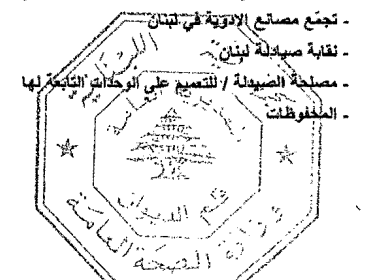 - تجمّع مصانع الادوية في لبنان
- نقابة صيادلة لبنان
- مصلحة الصيدلة / للتعميم على الوحدات التابعة لها
- المحفوظات
الجمهورية اللبنانية
المديرية العامة
قلم الديوان
وزارة الصحة العامة